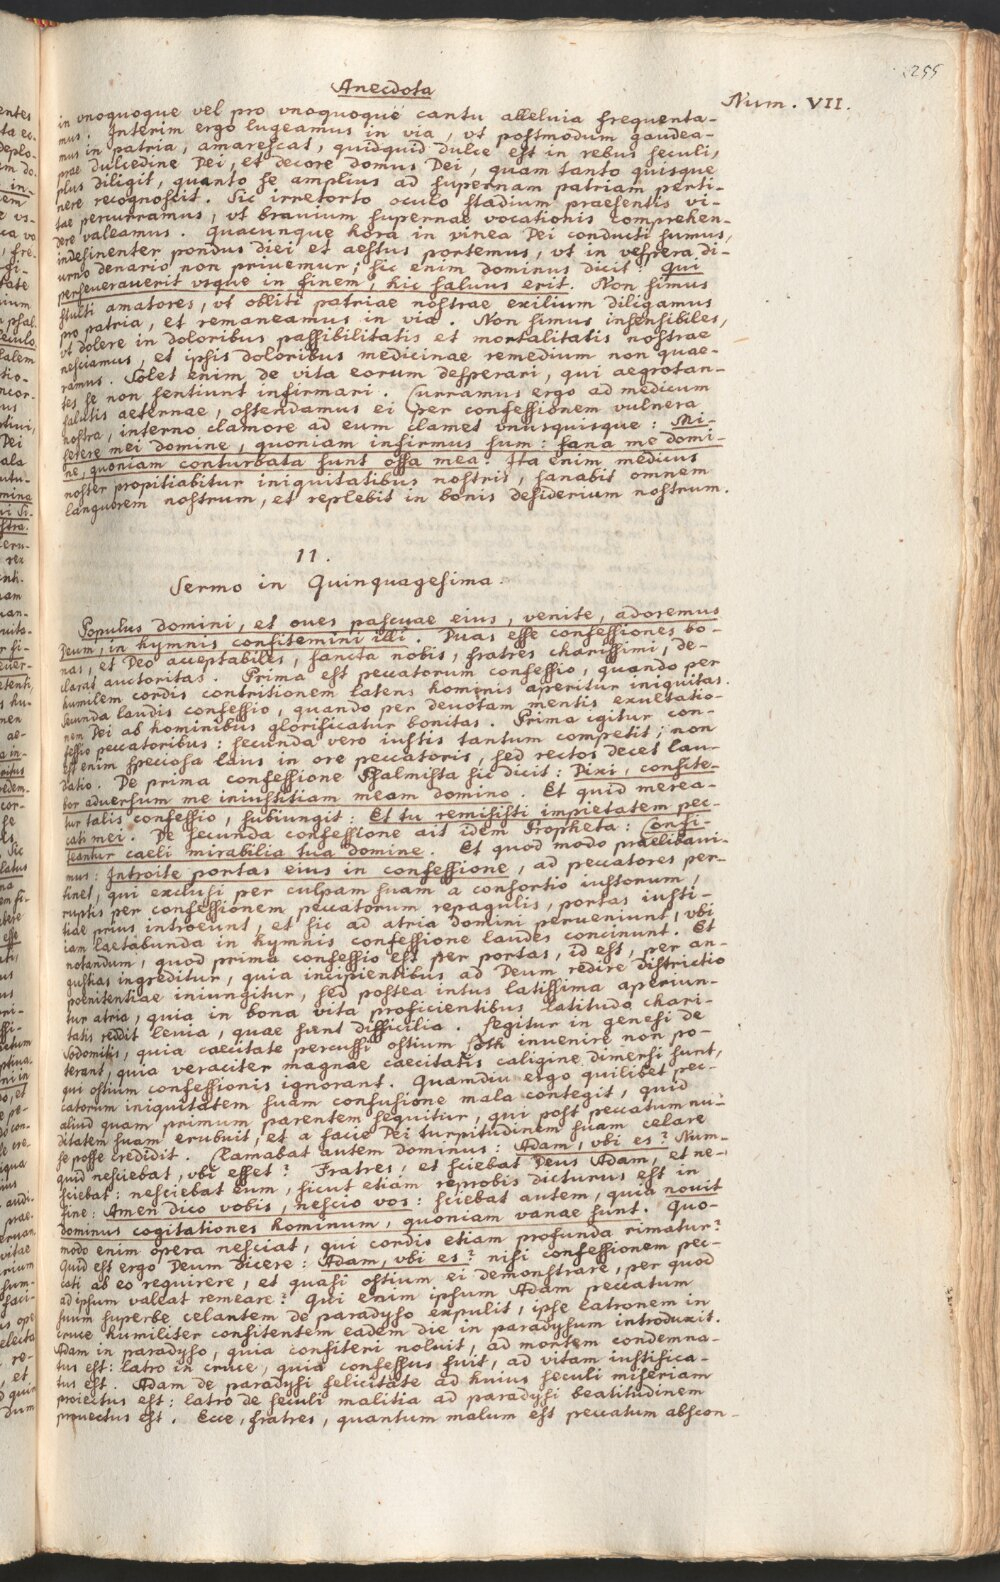 255
Anecdota
Num. VII.
in vnoquoque vel pro vnoquoque cantu alleluia frequenta-
mus. Interim ergo lugeamus in via, vt postmodum gaudea-
mus in patria, amarescat, quidquid dulce est in rebus seculi,
prae dulcedine Dei, et decore domus Dei, quam tanto quisque
plus diligit, quanto se amplius ad supernam patriam perti-
nere recognoscit. Sic irretorto oculo stadium praesentis vi-
tae percurramus, vt bravium supernae vocationis comprehen-
dere valeamus. Quacunque hora in vinea Dei conducti sumus,
indesinenter pondus diei et aestus portemus, vt in vespera di-
urno denario non priuemur; sic enim dominus dicit: Qui
perseuerauerit vsque in finem, hic saluus erit. Non simus
stulti amatores, vt obliti patriae nostrae exilium diligamus
pro patria, et remaneamus in via. Non simus insensibiles,
vt dolere in doloribus passibilitatis et mortalitatis nostrae
nesciamus, et ipsis doloribus medicinae remedium non quae-
ramus. Solet enim de vita eorum desperari, qui aegrotan-
tes se non sentiunt infirmari. Curramus ergo ad medicum
salutis aeternae, ostendamus ei per confessionem vulnera
nostra, interno clamore ad eum clamet vnusquisque: Mi-
serere mei domine, quoniam infirmus sum: sana me domi-
ne, quoniam conturbata sunt ossa mea. Ita enim medicus
noster propitiabitur iniquitatibus nostris, sanabit omnem
languorem nostrum, et replebit in bonis desiderium nostrum.
11.
Sermo in Quinquagesima.
Populus domini, et oues pascuae eius, venite, adoremus
Deum, in hymnis confitemini illi. Duas esse confessiones bo-
nas, et Deo acceptabiles, sancta nobis, fratres charissimi, de-
clarat auctoritas. Prima est peccatorum confessio, quando per
humilem cordis contritionem latens hominis aperitur iniquitas.
Secunda laudis confessio, quando per deuotam mentis exultatio-
nem Dei ab hominibus glorificatur bonitas. Prima igitur con-
fessio peccatoribus: secunda vero iustis tantum competit; non
est enim speciosa laus in ore peccatoris, sed rectos decet lau-
datio. De prima confessione Psalmista sic dicit: Dixi, confite-
bor aduersum me iniustitiam meam domino. Et quid merea-
tur talis confessio, subiungit: Et tu remisisti impietatem pec-
cati mei. De secunda confessione ait idem Propheta: Confi-
teantur caeli mirabilia tua domine. Et quod modo praelibaui-
mus: Introite portas eius in confessione, ad peccatores per-
tinet, qui exclusi per culpam suam a consortio iustorum,
ruptis per confessionem peccatorum repagulis, portas iusti-
tiae prius introeunt, et sic ad atria domini perueniunt, vbi
iam laetabunda in hymnis confessione laudes concinunt. Et
notandum, quod prima confessio est per portas, id est, per an-
gustias ingreditur, quia incipientibus ad Deum redire districtio
poenitentiae iniungitur, sed postea intus latissima aperiun-
tur atria, quia in bona vita proficientibus latitudo chari-
tatis reddit leuia, quae sunt difficilia. Legitur in genesi de
Sodomitis, quia caecitate percussi ostium Loth inuenire non po-
terant, quia veraciter magnae caecitatis caligine dimersi sunt,
qui ostium confessionis ignorant. Quamdiu ergo quilibet pec-
catorum iniquitatem suam confusione mala contegit, quid
aliud quam primum parentem sequitur, qui post peccatum nu-
ditatem suam erubuit, et a facie Dei turpitudinem suam celare
se posse credidit. Clamabat autem dominus: Adam, vbi es? Num-
quid nesciebat, vbi esset? Fratres, et sciebat Deus Adam, et ne-
sciebat: nesciebat eum, sicut etiam reprobis dicturus est in
fine: Amen dico vobis, nescio vos: sciebat autem, quia nouit
dominus cogitationes hominum, quoniam vanae sunt. Quo-
modo enim opera nesciat, qui cordis etiam profunda rimatur?
Quid est ergo Deum dicere: Adam, vbi es? nisi confessionem pec-
cati ab eo requirere, et quasi ostium ei demonstrare, per quod
ad ipsum valeat remeare? Qui enim ipsum Adam peccatum
suum superbe celantem de paradyso expulit, ipse latronem in
cruce humiliter confitentem eadem die in paradysum introduxit.
Adam in paradyso, quia confiteri noluit, ad mortem condemna-
tus est: latro in cruce, quia confessus fuit, ad vitam iustifica-
tus est. Adam de paradysi felicitate ad huius seculi miseriam
proiectus est: latro de seculi malitia ad paradysi beatitudinem
prouectus est. Ecce, fratres, quantum malum est peccatum abscon-